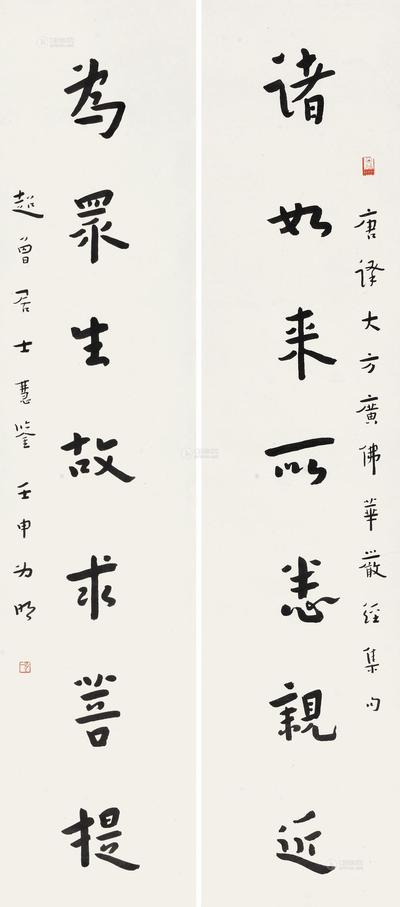 諸如来所悉親近
唐譯大方廣佛華嚴經集句
為眾生故求菩提
超曾居士慧鉴 壬申 为明